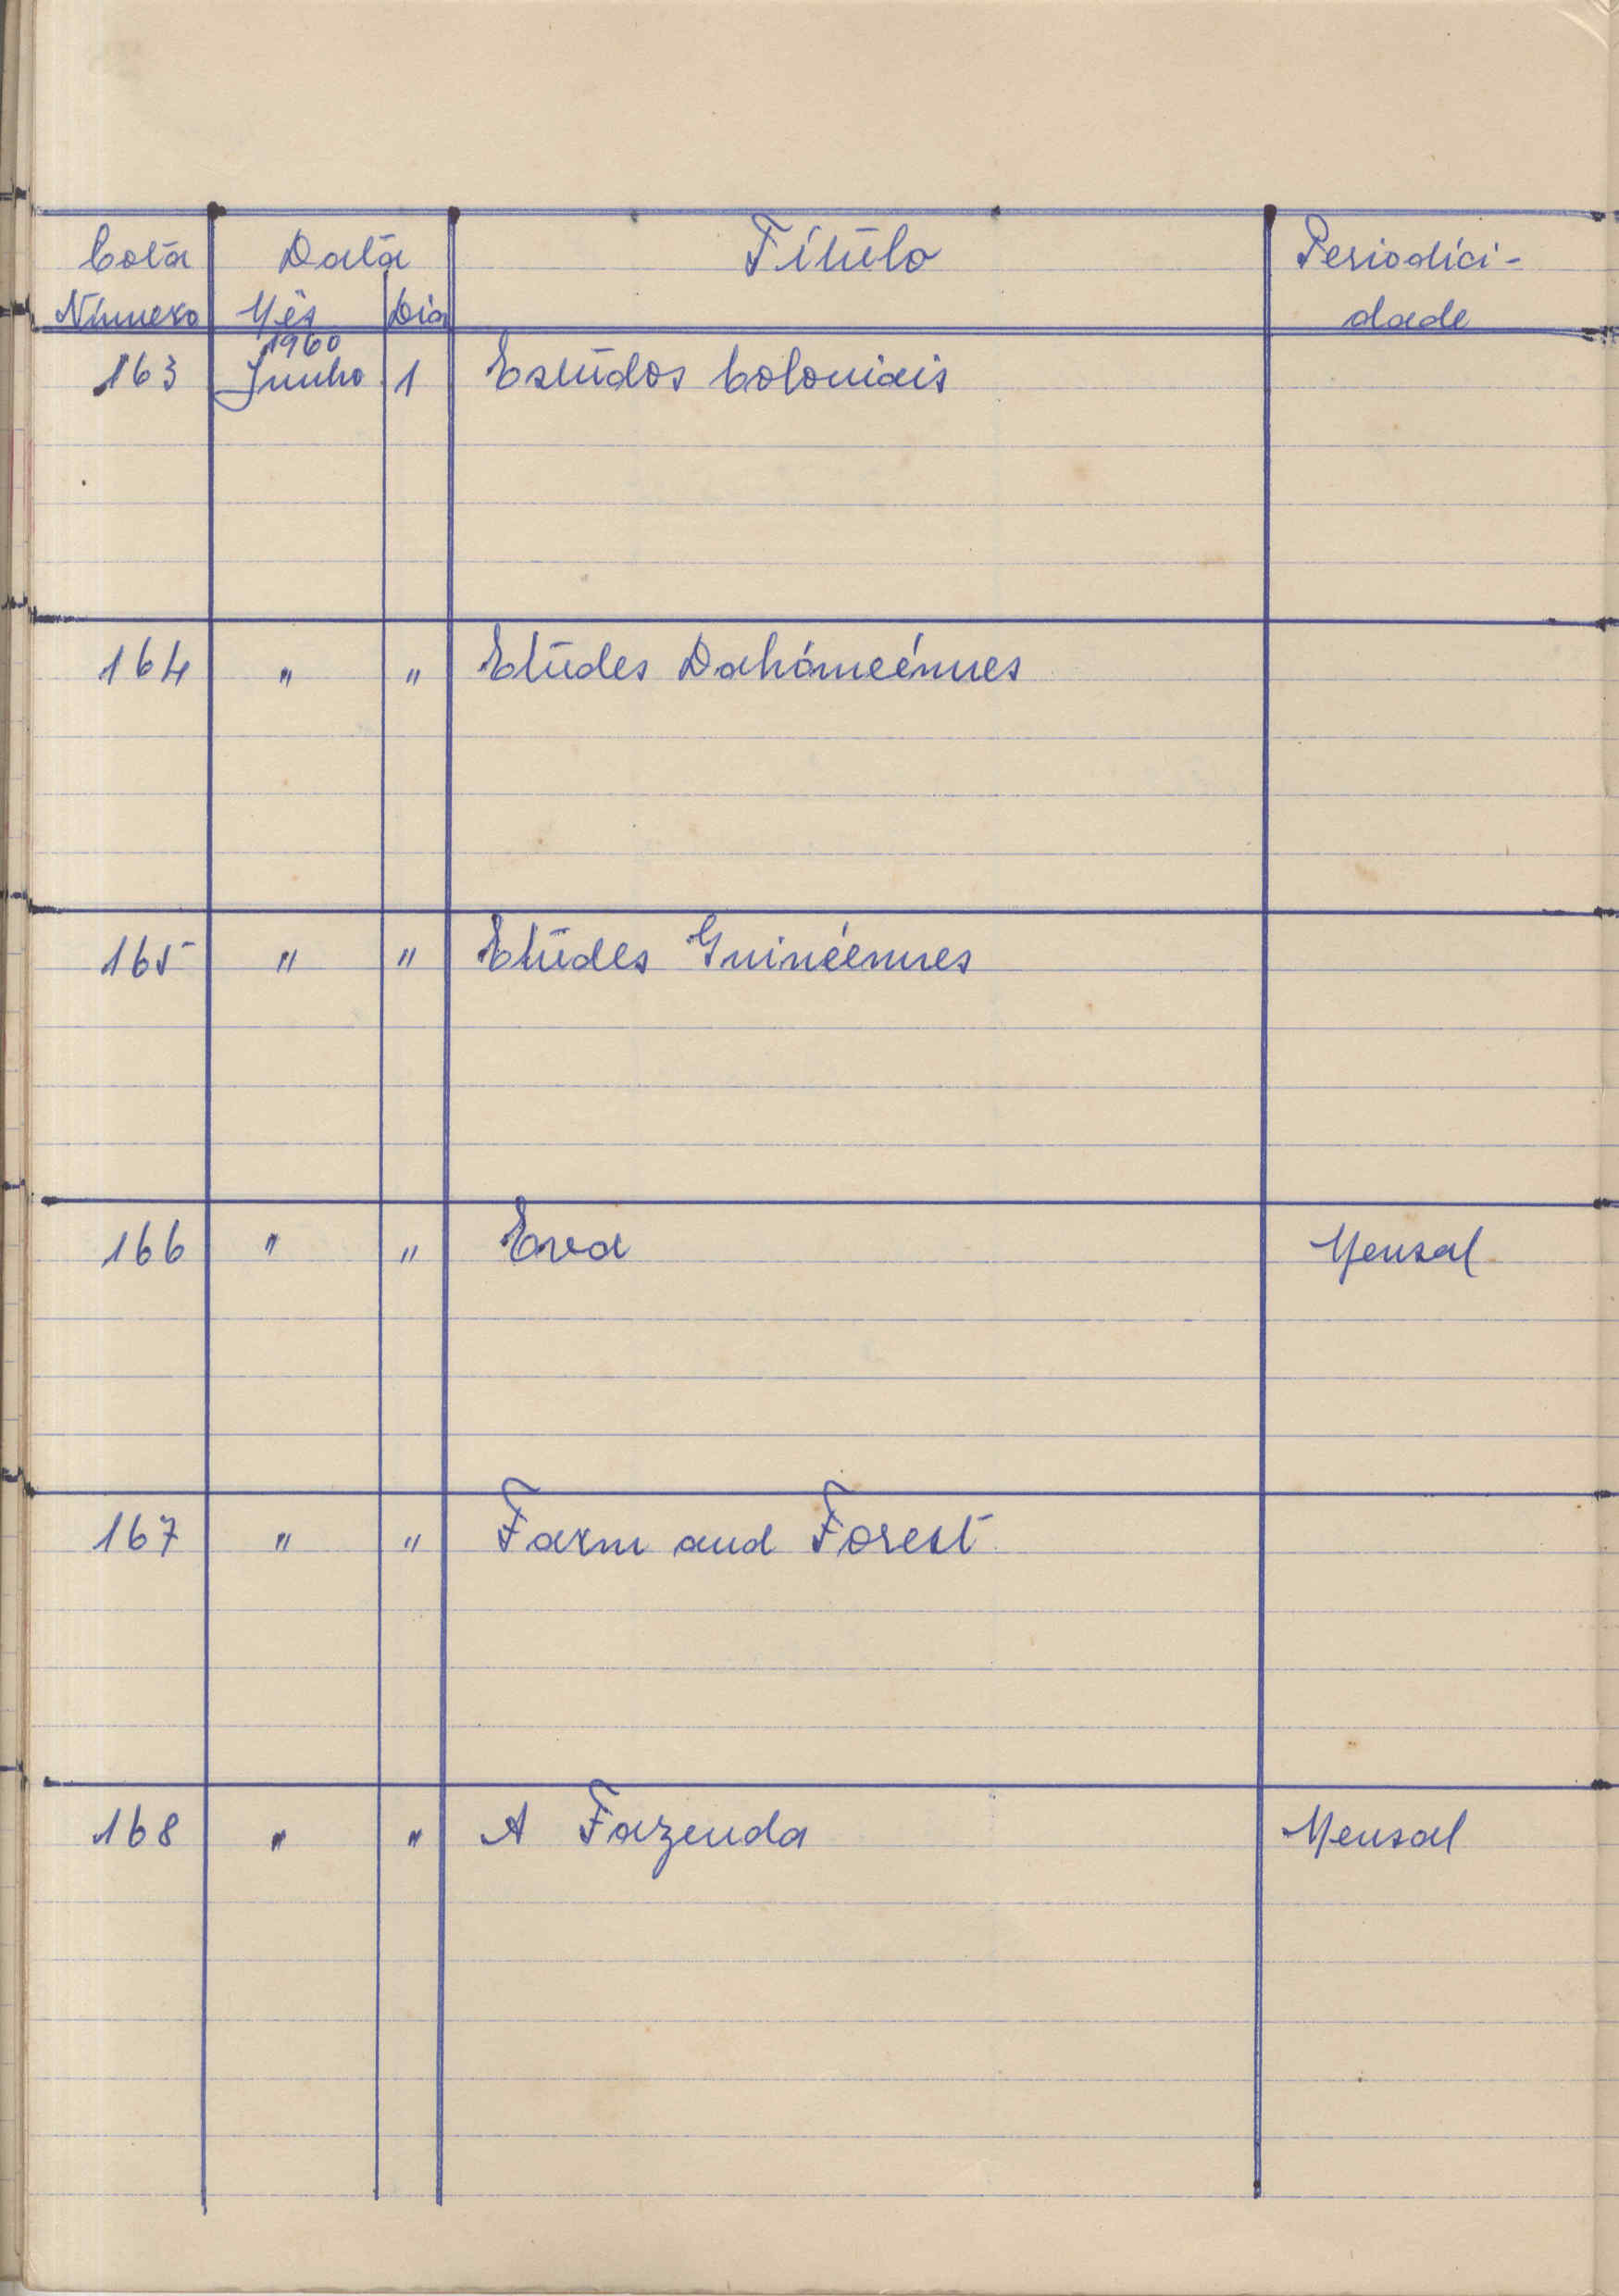 Cota Data Título Periodici-
Número Mês Dia dade
1960
163 Junho 1 Estudos Coloniais
164 " " Etudes Dahómeénnes
165 " " Etudes Guinéennes
166 " " Eva Mensal
167 " " Farm and Forest
168 " " A Fazenda Mensal